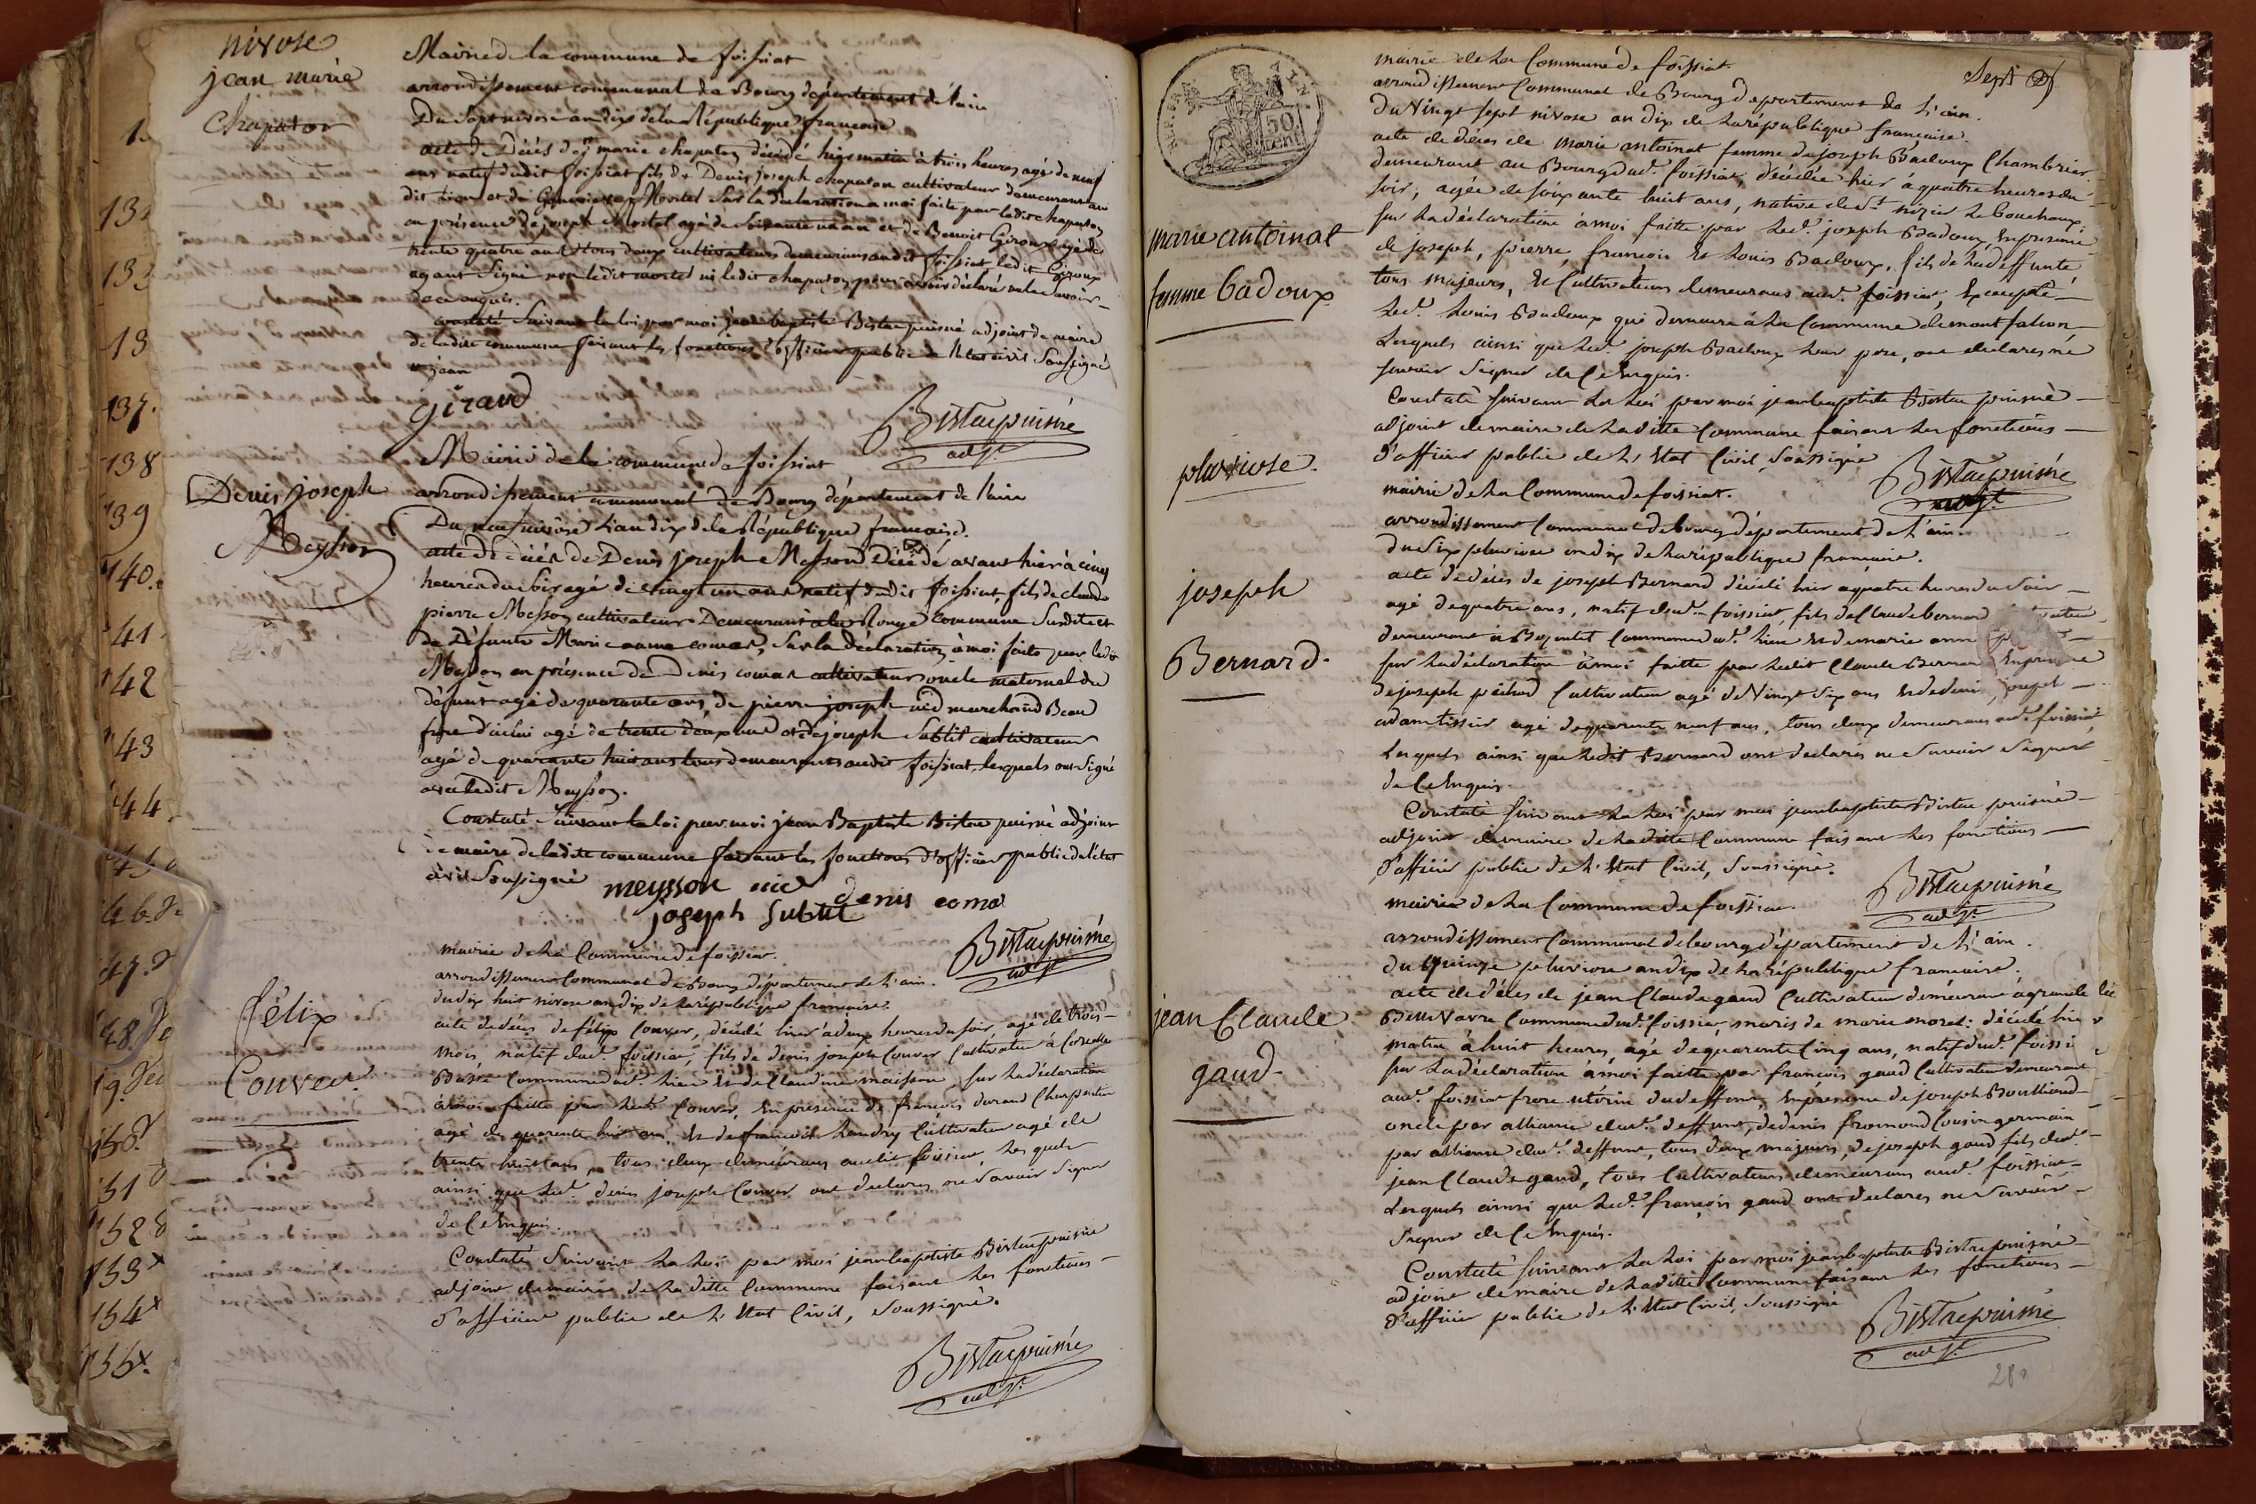 nivose
jean marie
Chapaton
Mairie de la commune de foissiat
arrondissement communal de Bourg département de l'ain
Du Sept nivose an dix de la République francaise
acte de Décés de jn marie chapaton décédé hier matin à trois heures agé de neuf
ans natif dudit foissiat fils de Denis joseph chapaton cultivateur demeurant au
dit lieu et de Genevieve Mortel Sur la déclaration a moi faite par ledit chapaton
en présence de joseph Mortel agé de Soixante un an et de Benoit Giroux agé de
trente quatre ans tous deux cultivateurs demeurans audit foissiat ledit Giroux
ayant Signé non ledit mortel ni ledit chapaton pour avoir déclaré ne le Savoir
de ce enquis.
Constaté Suivant la loi par moi jean baptiste Bistre puisné adjoint de maire
de ladite commune faisant les fonctions d'officier public de l'Etat civil Soussigné
giraud
Bistrepuisné
adjt.
Denis joseph
Meysson
Mairie de la commune de foissiat
arrondissement communal de Bourg département de l'ain
Du neuf nivôse l'an dix de la République francaise.
acte de décés de Denis joseph Meysson Décédé avant hier à cinq
heures du Soir agé de vingt un ans natif dudit foissiat fils de claude
pierre Meysson cultivateur Demeurant à la Rouge commune Susdite et
de Défunte Marie anne comas, Sur la déclaration à moi faite par ledit
Meysson en présence de Denis comas cultivateur oncle maternel du
défunt agé de quarante ans, de pierre joseph nid marchand Beau
frere d'icelui agé de trente deux ans et de joseph Subtil cultivateur
agé de quarante huit ans tous demeurants audit foissiat, lesquels ont Signé
avec ledit Meysson.
Constaté Suivant la loi par moi jean Baptiste Bistre puisné adjoint
de maire de ladite commune faisant les fonctions d'officier public de l'etat
civil Soussigné
meysson nid denis coma
joseph Subtil
Bistrepuisné
adjt.
félix
Couver.
mairie de la Commune de foissiat.
arrondissement Communal de Bourg département de l'ain.
du dix huit nivose an dix de la république francaise.
acte de décés de félix Couver, décédé hier à deux heures du soir, agé de trois
mois, natif dud. foissiat, fils de denis joseph Couver Cultivateur à
Commune dud. lieu et de Claudine maisson, sur la déclaration
à moi faitte par led. Couver, En présence de francois durand Charpentier
agé de quarante huit ans, et de francois Landry Cultivateur agé de
trente huit ans, tous deux demeurans audit foissiat, les quels
ainsi que led. denis joseph Couver ont declarés ne savoir signer
de Ce Enquis.
Constaté Suivant la Loi par moi jeanbaptiste Bistrepuisné
adjoint de maire de la ditte Commune faisant les fonctions
d'officier public de l'Etat Civil, soussigné.
Bistrepuisné
adjt.
1
13
133
13
137.
138
139
140.
41
42
43
44
45
46. D
47. D
48. De
19. Dei
150.
151
152
153x
154x
155x.
50
Cent.
Sept
marie antoinat
femme badoux
mairie de La Commune de foissiat.
arroudissement Communal de Bourg département de L'ain.
du Vingt sept nivose an dix de la république francaise.
acte de décés de marie antoinat femme de joseph Badoux Chambrier
demeurant au Bourg dud. foissiat, décédée hier à quatre heures du
soir, agée de soixante huit ans, native de St nizier le bouchoux,
sur la déclaration à moi faitte par led. joseph Badoux, En présence
de joseph, pierre, francois et Louis Badoux, fils de la deffunte
tous majeurs, et Cultivateurs demeurans aud. foissiat, Excepté
led. Louis Badoux qui demeure à la Commune de montfalcon
Lesquels ainsi que led. joseph Badoux leur pere, ont declarés ne
savoir signer de Ce Enquis.
Constaté suivant La Loi par moi jeanbaptiste Bistre puisné
adjoint de maire de laditte Commune faisant les fonctions
d'officier public de L'Etat Civil, soussigné
Bistrepuisné
adjt.
pluviose.
joseph
Bernard.
mairie de La Commune de foissiat.
arrondissement Communal de bourg département de L'ain.
du Six pluviose an dix de la république francaise.
acte de décés de joseph Bernard décédé hier à quatre heures du Soir
agé de quatre ans, natif dud. foissiat, fils de Claude bernard
demeurant à Bezentet Commune dud. lieu et de marie anne
sur la déclaration à moi faitte par ledit Claude Bernard En présence
de joseph péchod Cultivateur agé de Vingt Six ans et de denis joseph
adam tissier agé de quarante neuf ans, tous deux demeurans aud. foissiat,
Lesquels ainsi que ledit Bernard ont declarés ne Savoir Signer
de Ce Enquis.
Constaté Suivant La Loi par moi jeanbaptiste Bistre puisné
adjoint de maire de ladite Commune faisant les fonctions
d'officier public de L'Etat Civil, Soussigné.
Bistrepuisné
adjt.
jean Claude
gaud
mairie de La Commune de foissiat.
arrondissement Communal de bourg département de L'ain.
du quinze pluviose an dix de la république francaise.
acte de décés de jean Claude gaud Cultivateur demeurant à grande
Commune dud. foissiat, maris de marie morel: décédé hier
matin à huit heures, agé de quarente Cinq ans, natif dud. foissiat
sur La déclaration à moi faitte par francois gaud Cultivateur demeurant
aud. foissiat frere utérin du deffunt, En présence de joseph Boulliaud
oncle par alliance dud. deffunt, de denis fromond Cousin germain
par alliance dud. deffunt, tous deux majeurs, de joseph gaud fils dud.
jean Claude gaud, tous Cultivateurs demeurans aud. foissiat
Lesquels ainsi que led. francois gaud ont declarés ne Savoir
Signer de Ce Enquis.
Constaté Suivant La Loi par moi jeanbaptiste Bistre puisné
adjoint de maire de laditte Commune faisant les fonctions
d'officier public de L'Etat Civil, soussigné
Bistrepuisné
adjt.